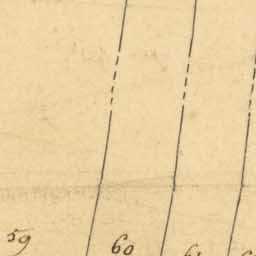 59 60 61